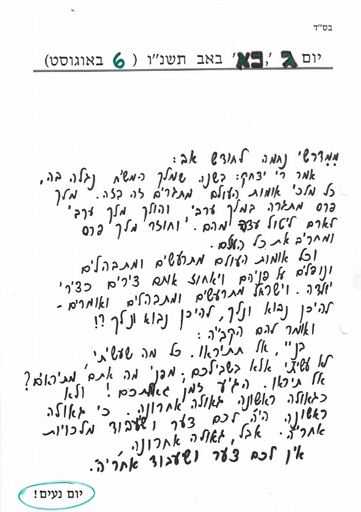 בס"ד
יום ג', כא' באב תשנ"ו (6 באוגוסט)
ממדרשי נחמה לחודש אב:
אמר ר' יצחק: בשנה שמלך המשיח נגלה בה,
כל מלכי אומות העולם מתגרים זה בזה. מלך
פרס מתגרה במלך ערבי והולך מלך ערבי
לארם ליטול עצה מהם. וחוזר מלך פרס
ומחריב את כל העולם.
וכל אומות העולם מתרעשים ומתבהלים
ונופלים על פניהם ויאחוז אותם צירים כצירי
יולדה. וישראל מתרעשים ומתבהלים ואומרים -
להיכן נבוא ונלך, להיכן נבוא ונלך ?!
ואומר להם הקב"ה:
בניי, אל תתיראו. כל מה שעשיתי
לא עשיתי אלא בשבילכם. מפני מה אתם מתיראים?
אל תיראו. הגיע זמן גאולתכם! ולא
כגאולה ראשונה גאולה אחרונה. כי גאולה
ראשונה היה לכם צער ושעבוד מלכויות
אחריה. אבל, גאולה אחרונה
אין לכם צער ושעבוד אחריה.
יום נעים!